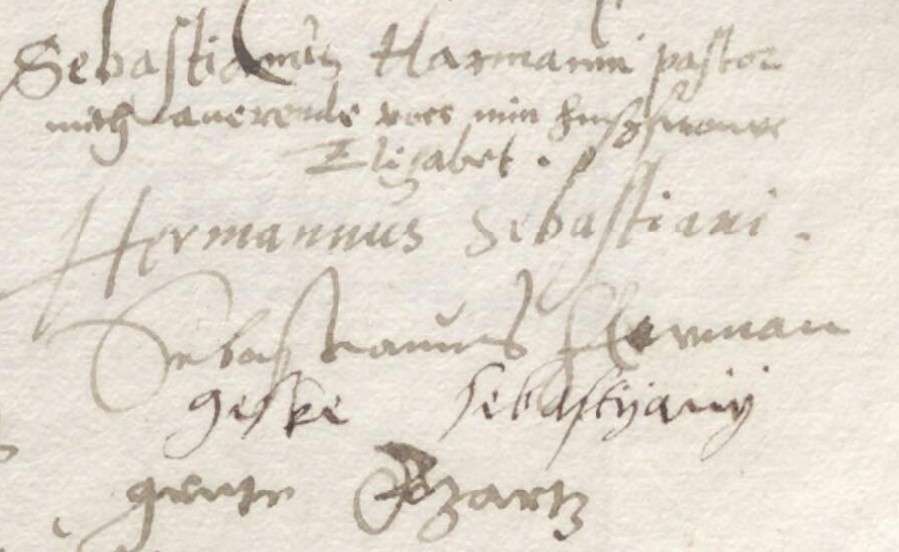 Sebastianus Harmanni pastor
mith averende vor min huszfrauwe
Elizabet.
Hermannus Sebastiani.
Sebastianus Herman
geske sebastijanij
grete